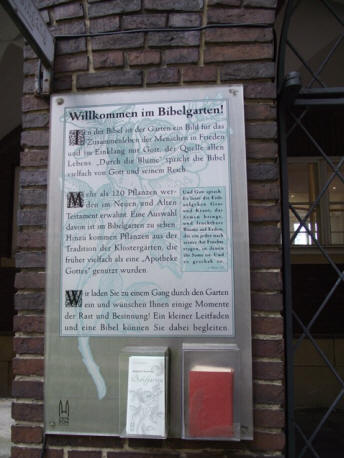 Willkommen im Bibelgarten!
In der Bibel ist der Garten ein Bild für das
Zusammenleben der Menschen in Frieden
und im Einklang mit Gott, der Quelle allen
Lebens. „Durch die Blume" spricht die Bibel
vielfach von Gott und seinem Reich.
Mehr als 120 Pflanzen wer-
den im Neuen und Alten
Testament erwähnt. Eine Auswahl
davon ist im Bibelgarten zu sehen.
Hinzu kommen Pflanzen aus der
Tradition der Klostergärten, die
früher vielfach als eine „Apotheke
Gottes" genutzt wurden.
Und Gott sprach:
Es lasse die Erde
aufgehen Gras
und Kraut, das
Samen bringe,
und fruchtbare
Bäume auf Erden,
die ein jeder nach
seiner Art Früchte
tragen, in denen
ihr Same ist. Und
es geschah so.
Wir laden Sie zu einem Gang durch den Garten
ein und wünschen Ihnen einige Momente
der Rast und Besinnung! Ein kleiner Leitfaden
und eine Bibel können Sie dabei begleiten.